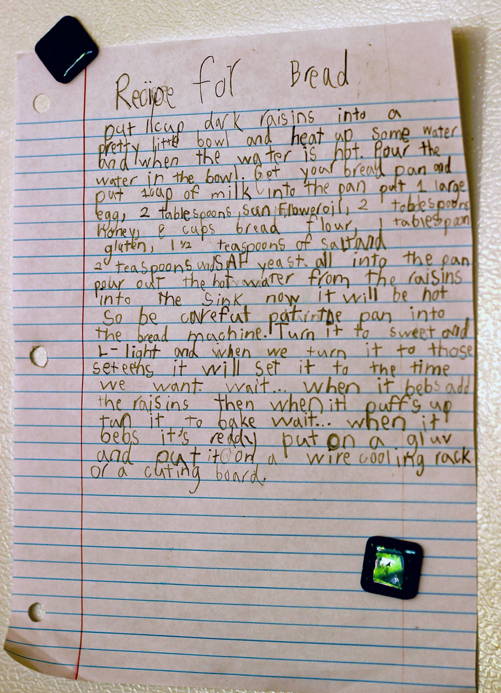 Recipe for Bread
put 1 cup dark raisins into a
pretty little bowl and heat up some water
and when the water is hot. Pour the
water in the bowl. Get your bread pan and
put 1 cup of milk into the pan put 1 large
egg, 2 tablespoons sun floweroil, 2 tablespoons
Honey, cups bread flour, 1 tablespoon
gluten, 1 1/2 teaspoons of salt and
2 teaspoons SAF yeast all into the pan
pour out the hot water from the raisins
into the sink now it will be hot
so be careful put the pan into
the bread machine. Turn it to sweet and
L-light and when we turn it to those
seteens it will set it to the time
we want wait... when it bebs add
the raisins then when it puffs up
turn it to bake wait... when it
bebs it's ready put on a gluv
and put it on a wire cooling rack
or a cuting board.